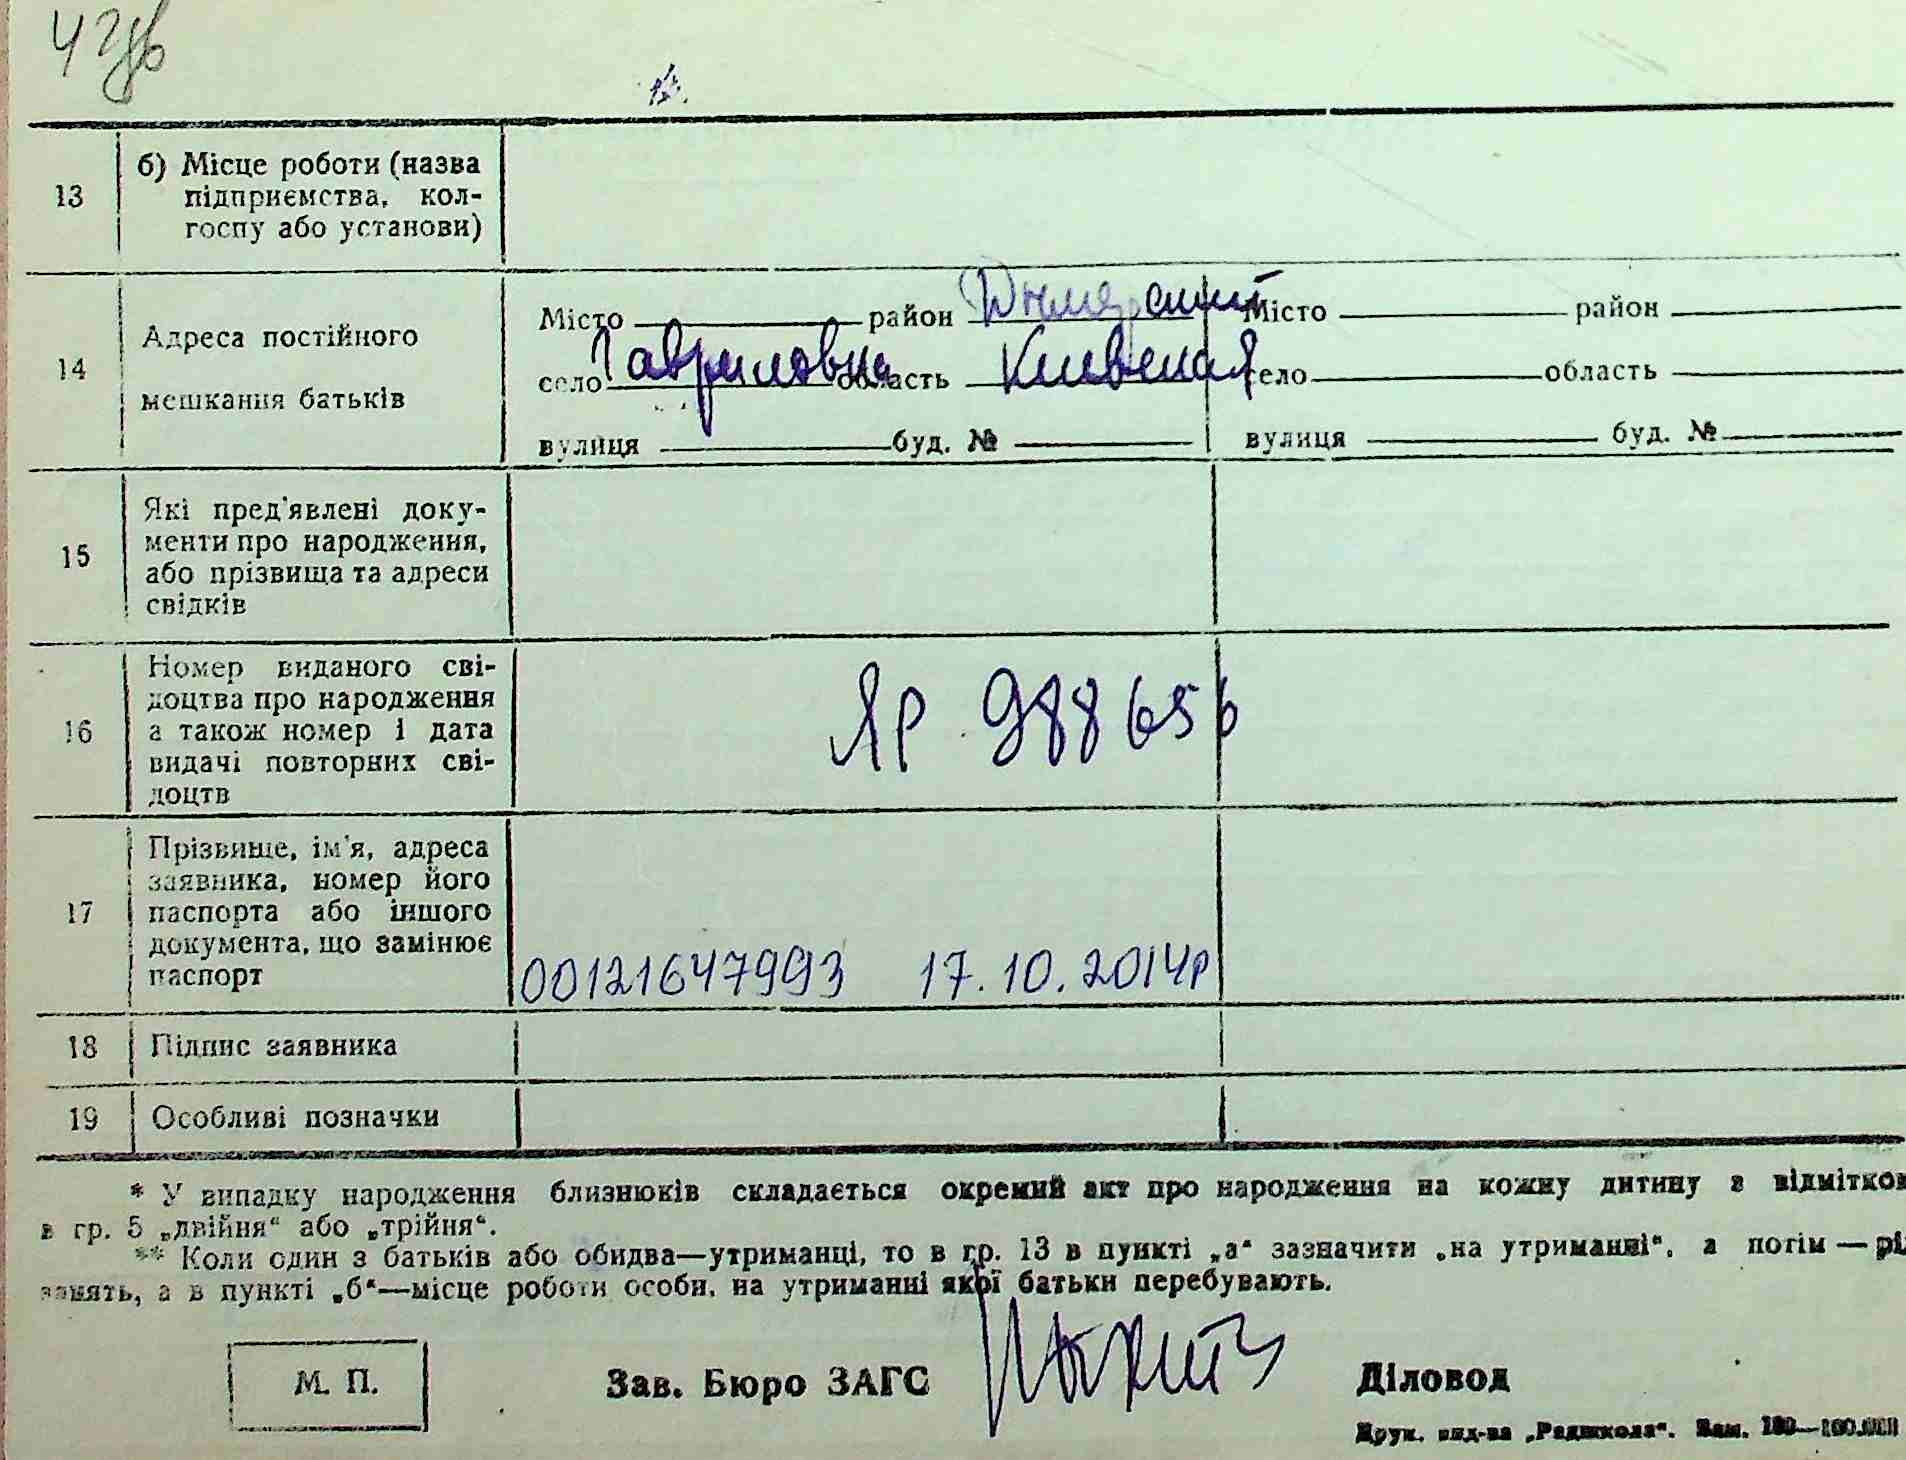 13 б) Місце роботи (назва
підприємства, кол-
госпу або установи)
14 Адреса постійного
мешкання батьків
Місто район Дымерский Місто район
село Гавриловка область Киевская село область
вулиця буд. № вулиця буд. №
15 Які пред'явлені доку-
менти про народження,
або прізвища та адреси
свідків
16 Номер виданого сві-
доцтва про народження
а також номер і дата
видачі повторних сві-
доцтв
ЯР 988656
17 Прізвище, ім'я, адреса
заявника, номер його
паспорта або іншого
документа, що замінює
паспорт
00121647993 17.10.2014р
18 Підпис заявника
19 Особливі позначки
* У випадку народження близнюків складається окремий акт про народження на кожну дитину з відмітков
в гр. 5 „двійня“ або „трійня“.
** Коли один з батьків або обидва—утриманці, то в гр. 13 в пункті „а“ зазначити „на утриманні“, а потім — рід
занять, а в пункті „б“—місце роботи особи, на утриманні якої батьки перебувають.
М. П. Зав. Бюро ЗАГС Діловод
Друк. вид-ва „Радшкола“. Зам. 180—100.000